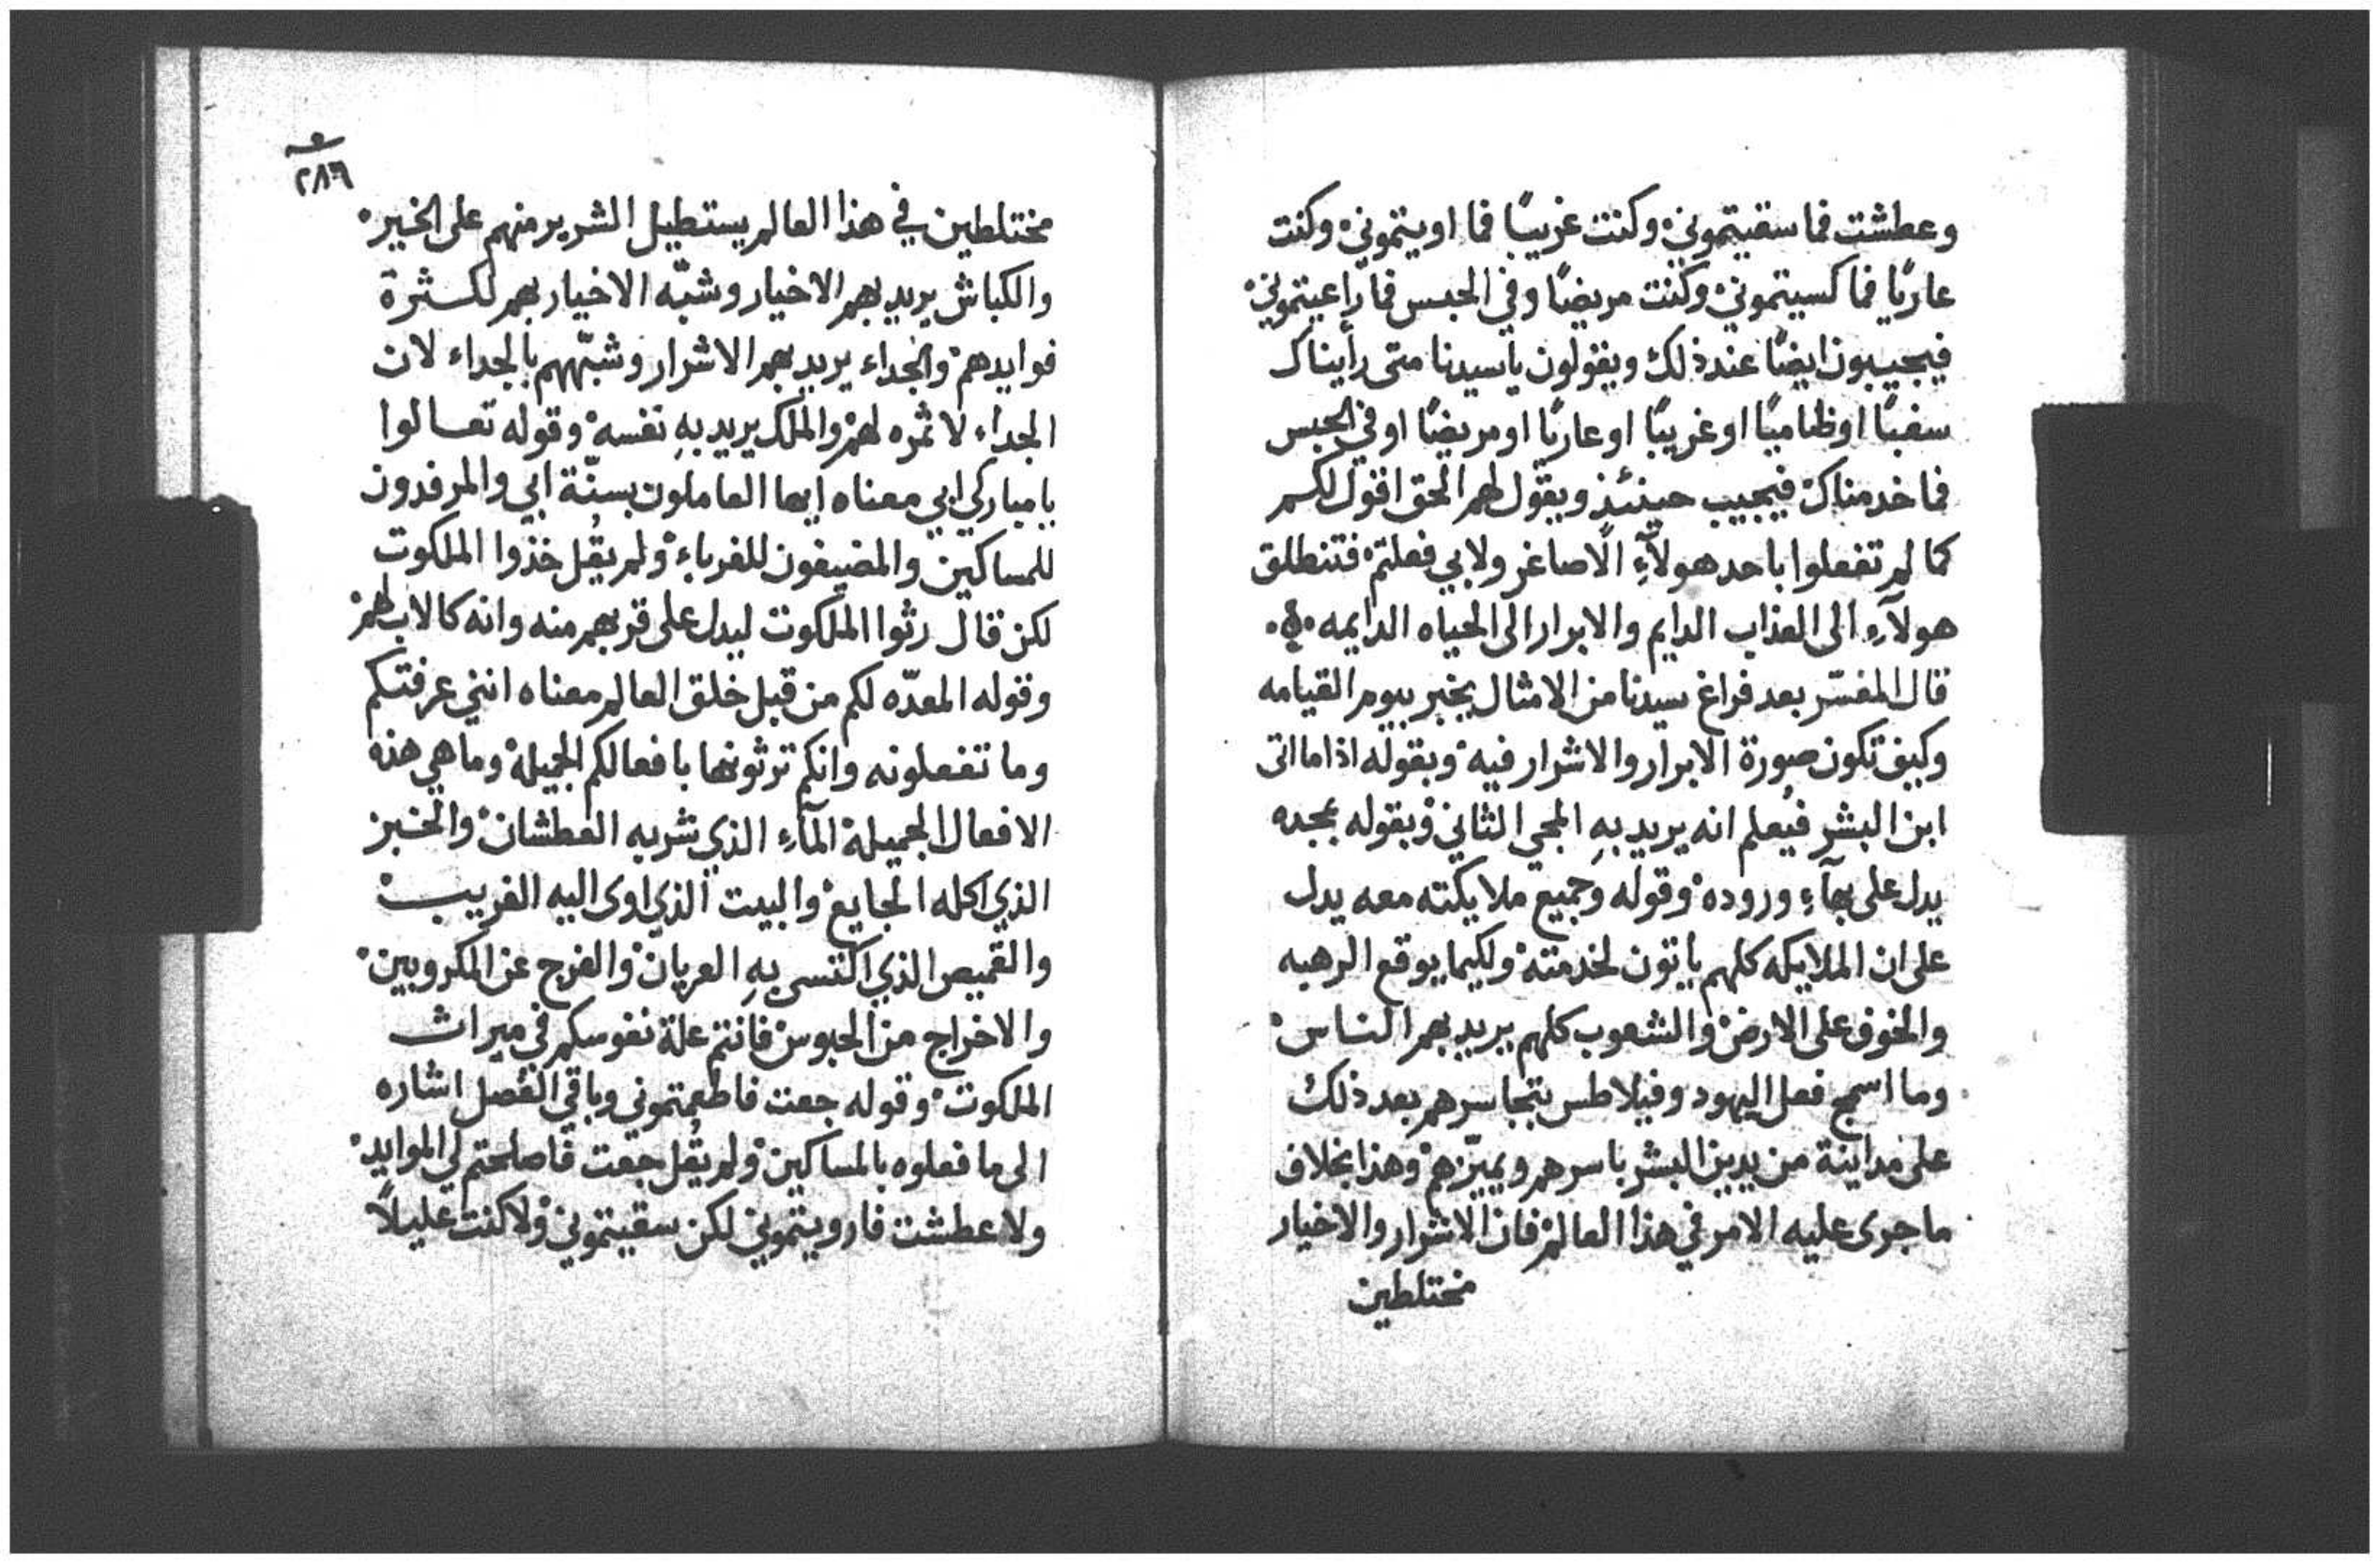 وعطشت فما سقيتموني وكنت غريبًا فما اويتموني وكنت
عاريًا فما كسيتموني وكنت مريضًا وفي الحبس فما راعيتموني
فيجيبون ايضًا عند ذلك ويقولون يا سيدنا متى رأيناك
سغبًا او ظاميًا او غريبًا او عاريًا او مريضًا او في الحبس
فما خدمناك فيجيب حينئذ ويقول لهم الحق اقول لكم
كما لم تفعلوا باحد هولآءِ الاصاغر ولا بي فعلتم فتنطلق
هولآءِ الى العذاب الدايم والابرار الى الحياه الدايمه
قال المفسّر بعد فراغ سيدنا من الامثال يخبر بيوم القيامه
وكيف تكون صورة الابرار والاشرار فيه وبقوله اذا ما اتى
ابن البشر فيُعلم انه يريد بهِ المجي الثاني وبقوله بمجده
يدل على بهآءِ وروده وقوله وجميع ملايكته معه يدل
على ان الملايكه كلهم ياتون لخدمته ولكيما يوقع الرهبه
والخوف على الارض والشعوب كلهم يريد بهم الناس
وما اسمج فعل اليهود وفيلاطس بتجاسرهم بعد ذلك
على مداينة من يدين البشر باسرهم ويميّزهم وهذا بخلاف
ما جرى عليه الامر في هذا العالم فان الاشرار والاخيار
مختلطين
٢٨٦
مختلطين في هذا العالم يستطيل الشرير منهم على الخير
والكباش يريد بهم الاخيار وشبّه الاخيار بهم لكثرة
فوايدهم والجداء يريد بهم الاشرار وشبّههم بالجداء لان
الجداء لا ثمره لهم والملك يريد بهِ نفسه وقوله تعالوا
يا مباركي ابي معناه ايها العاملون بسنّة ابي والمرفدون
للمساكين والمضيفون للغرباء ولم يقُل خذوا الملكوت
لكن قال رثوا الملكوت ليدل على قربهم منه وانه كالاب لهم
وقوله المعدّه لكم من قبل خلق العالم معناه انني عرفتكم
وما تفعلونه وانكم ترثونها بافعالكم الجميله وما هي هذه
الافعال الجميلة المآءِ الذي شربه العطشان والخبز
الذي اكله الجايع والبيت الذي اوى اليه الغريب
والقميص الذي اكتسى بهِ العريان والفرج عن المكروبين
والاخراج من الحبوس فانتم علة نفوسكم في ميراث
الملكوت وقوله جعت فاطعمتموني وباقي الفصل اشاره
الى ما فعلوه بالمساكين ولم يقُل جعت فاصلحتم لي الموايد
ولا عطشت فارويتموني لكن سقيتموني ولا كنت عليلاً